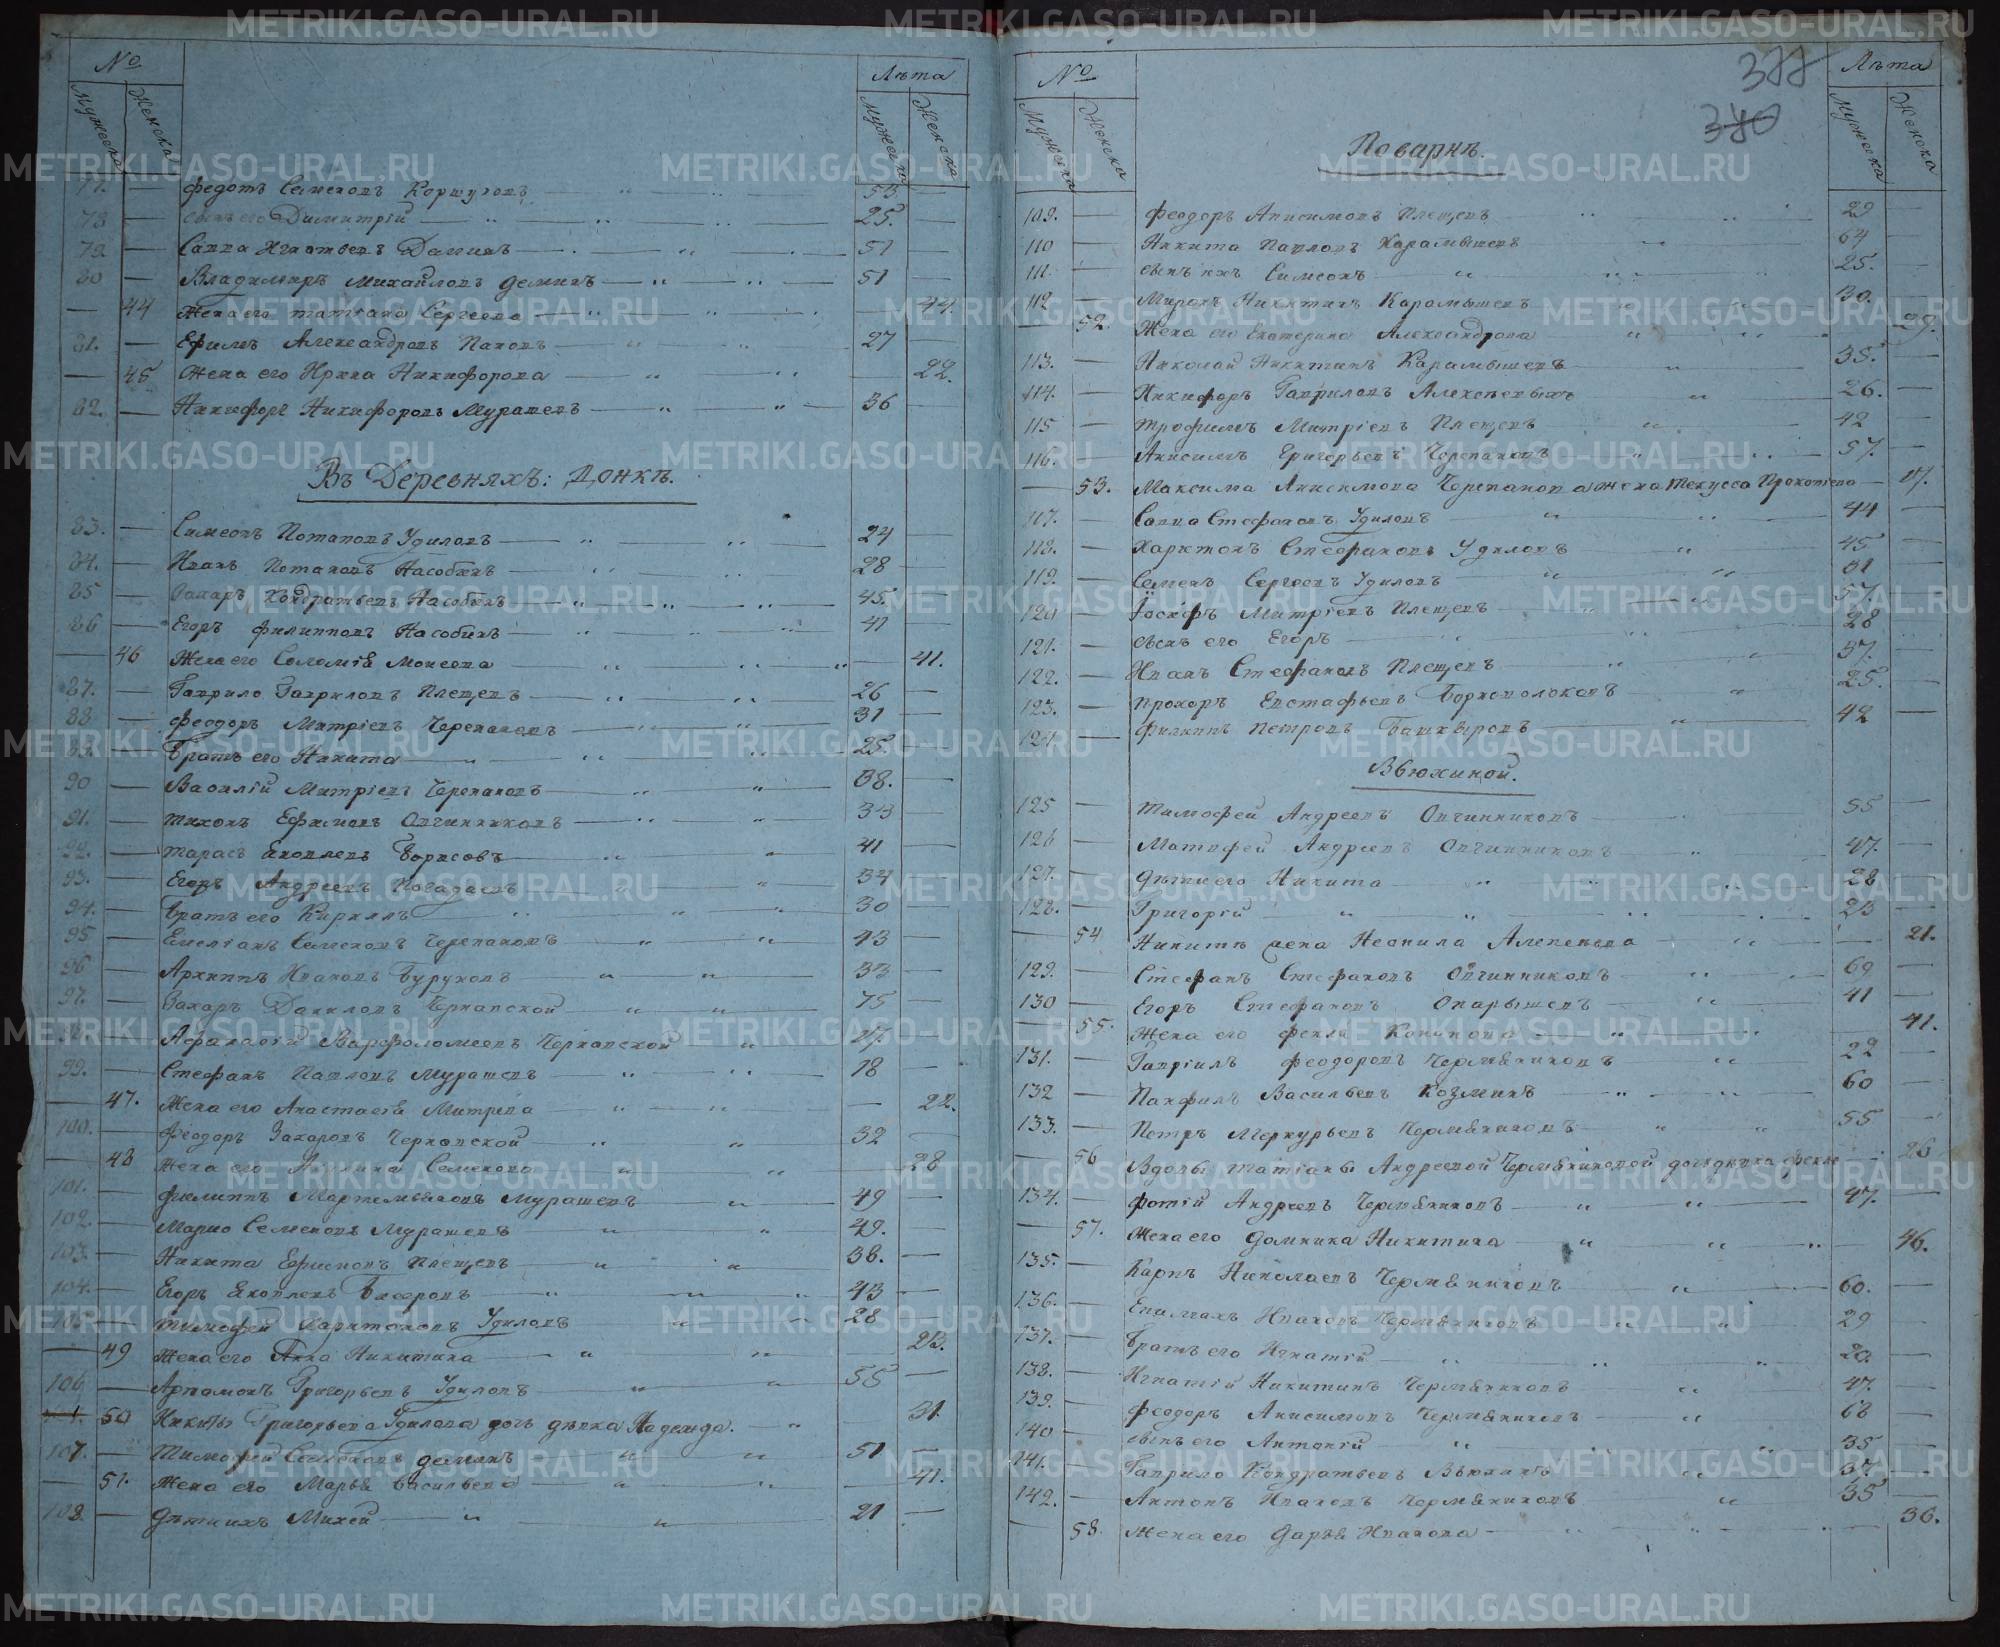 № Лѣта
Мужеска Женска Мужеска Женска
77. — Федотъ Семеновъ Коршуновъ 53 —
78 — сынъ его Димитрій 25. —
79. — Савва Игнатьевъ Даминъ 51 —
80 — Владимиръ Михайловъ Деминъ 51 —
— 44 Жена его татіана Сергеева — 44.
81. — Ефимъ Александровъ Пановъ 27 —
— 45 Жена его Ирина Никифорова — 22.
82. — Никифоръ Никифоровъ Мурашевъ 36 —
Въ Деревняхъ: Донкѣ.
83. — Симеонъ Потаповъ Удиловъ 24 —
84. — Иванъ Потаповъ Насобинъ 28 —
85 — Захаръ Кондратьевъ Насобинъ 45. —
86 — Егоръ Филипповъ Насобинъ 41 —
— 46 Жена его Соломія Моисеева — 41.
87. — Гаврило Гавриловъ Плещевъ 26 —
88 — Феодоръ Митріевъ Черепановъ 31 —
89. — Братъ его Никита 25. —
90 — Василій Митріевъ Черепановъ 38. —
91. — Тихонъ Ефимовъ Овчинниковъ 33 —
92. — Тарасъ Яковлевъ Борисовъ 41 —
93. — Егоръ Андреевъ Погадаевъ 34 —
94. — Братъ его Кирилъ 30 —
95 — Емеліанъ Семеновъ Черепановъ 43 —
96 — Архиппъ Ивановъ Буруновъ 33 —
97. — Захаръ Даниловъ Черкавской 75 —
— Афанасій Варфоломеевъ Черкавской 47. —
99. — Стефанъ Павловъ Мурашевъ 78 —
— 47. Жена его Анастасія Митрева — 22.
100. — Феодоръ Захаровъ Черкавской 32 —
— 48 Жена его Акулина Семенова — 28
101. — Филиппъ Мартемьяновъ Мурашевъ 49 —
102. — Марко Семеновъ Мурашевъ 49. —
103. — Никита Ефимовъ Плещевъ 38. —
104. — Егоръ Яковлевъ 43 —
105 — Тимофей Харитоновъ Удиловъ 28 —
— 49 Жена его Анна Никитина — 23.
106 — Артамонъ Григорьевъ Удиловъ 55 —
50 Никиты Григорьева Удилова дочь дѣвка Надежда. — 31.
107 — Тимофей Деминъ 51 —
— 51. Жена его Марья Васильева — 41.
108 — Дѣти ихъ Михей 21 —
№ 377 Лѣта
380
Мужеска Женска Мужеска Женска
Поварнѣ.
109. — Феодоръ Анисимовъ Плещевъ 29 —
110 — Никита Павловъ Карамышевъ 64 —
111. — сынъ ихъ Симеонъ 25. —
112 — Миронъ Никитинъ Карамышевъ 30. —
— 52. Жена его Екатерина Александрова — 29.
113. — Николай Никитинъ Карамышевъ 35. —
114. — Никифоръ Гавриловъ Алексѣевыхъ 26. —
115 — Трофимъ Митріевъ Плещевъ 42 —
116. — Анисимъ Григорьевъ Черепановъ 57. —
— 53. Максима Анисимова Черепанова жена Текусса Прокопіева —
117. — Савва Стефановъ Удиловъ 44 —
118. — Харитонъ Стефановъ Удиловъ 45 —
119. — Семенъ Сергеевъ Удиловъ 31 —
120 — Іосифъ Митріевъ Плещевъ 57. —
121. — сынъ его Егоръ 28 —
122. — Иванъ Стефановъ Плещевъ 57. —
123. — Прохоръ Евстафьевъ Борноволоковъ 25. —
124 — Филиппъ Петровъ Башкыровъ 42 —
Вьюхиной.
125 — Тимофей Андреевъ Овчинниковъ 55 —
126 — Матвѣей Андреевъ Овчинниковъ 47. —
127. — дѣти его Никита 28 —
128. — Григорій 23 —
— 54 Никитѣ жена Неонила Алексѣева — 21.
129. — Стефанъ Стефановъ Овчинниковъ 69 —
130 — Егоръ Стефановъ Опарышевъ 41 —
— 55. Жена его Фекла Конинова — 41.
131. — Гавріилъ Феодоровъ Чермяниновъ 22 —
132 — Панфилъ Васильевъ Козминъ 60 —
133. — Петръ Меркурьевъ Чермяниновъ 55 —
56 Вдовы Татіаны Андреевой Чермяниновой дочь дѣвка Фекла — 26
134. — Фотій Андреевъ Чермяниновъ 47. —
— 57. Жена его Домника Никитина — 46.
135. — Карпъ Николаевъ Чермяниновъ 60. —
136. — Епимахъ Ивановъ Чермяниновъ 29 —
137. — Братъ его Игнатій 20. —
138. — Игнатій Никитинъ Чермяниновъ 47. —
139. — Феодоръ Анисимовъ Чермяниновъ 68 —
140 — сынъ его Антоній 35 —
141. — Гаврило Кондратьевъ Вьюхинъ 37 —
142. — Антонъ Ивановъ Чермяниновъ 35 —
— 58. Жена его Дарья Иванова — 36.
METRIKI.GASO-URAL.RU